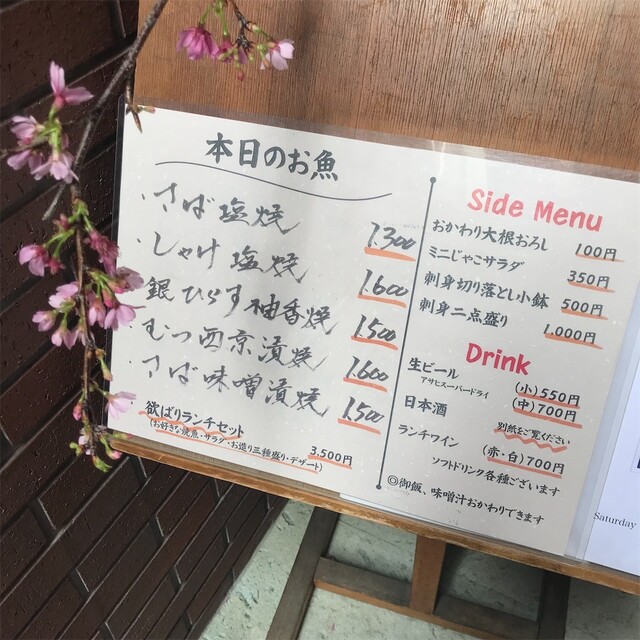 本日のお魚
・さば塩焼 1.300
・しゃけ塩焼 1.600
・銀ひらす柚香焼 1.500
・むつ西京漬焼 1.600
・さば味噌漬焼 1.500
欲ばりランチセット
(お好きな焼魚・サラダ・お造り三種盛り・デザート) 3,500円
Side Menu
おかわり大根おろし 100円
ミニじゃこサラダ 350円
刺身切り落とし小鉢 500円
刺身二点盛り 1,000円
Drink
生ビール (小)550円
アサヒスーパードライ (中)700円
日本酒 別紙をご覧ください
ランチワイン (赤・白)700円
ソフトドリンク各種ございます
◎御飯、味噌汁おかわりできます
Saturday